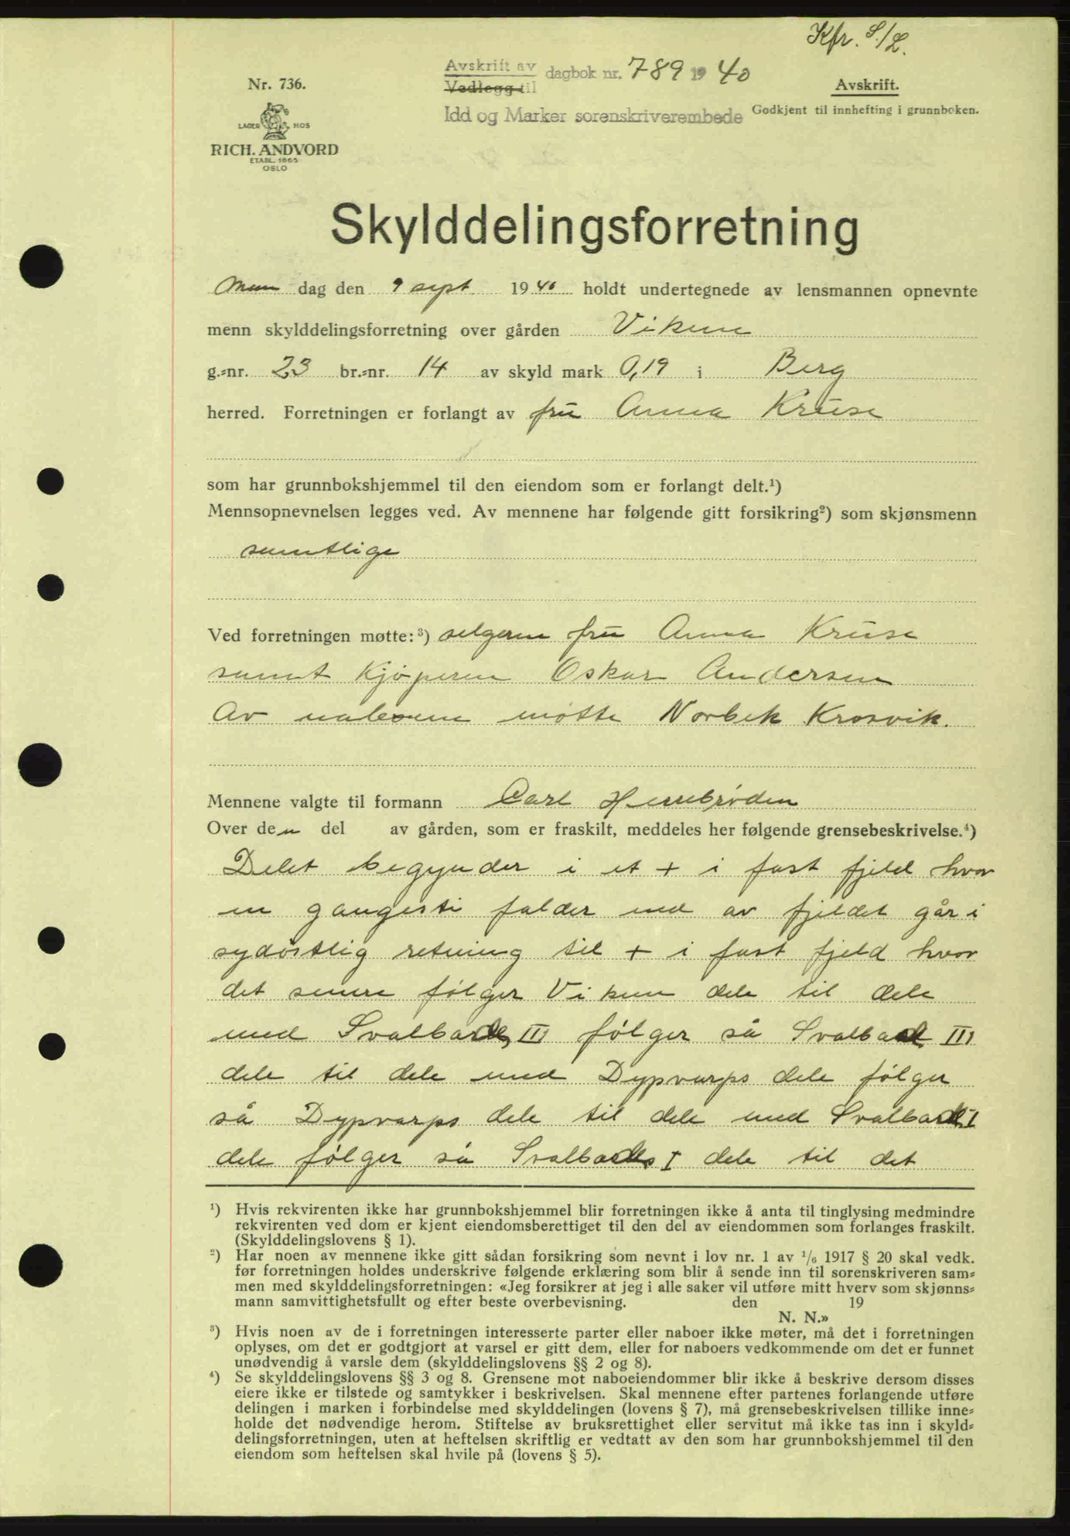 Kfr. S./L.
Avskrift av
Vedlegg til
dagbok nr. 789 1940
Idd og Marker sorenskriverembede
Nr. 736.
LAGER HOS
RICH. ANDVORD
ETABL. 1865
OSLO
Avskrift.
Godkjent til innhefting i grunnboken.
Skylddelingsforretning
Man dag den 9 sept 1940 holdt undertegnede av lensmannen opnevnte
menn skylddelingsforretning over gården Vikum
g.=nr. 23 br.=nr. 14 av skyld mark 0,19 i Berg
herred. Forretningen er forlangt av fru Anna Kruse
som har grunnbokshjemmel til den eiendom som er forlangt delt.¹)
Mennsopnevnelsen legges ved. Av mennene har følgende gitt forsikring²) som skjønsmenn
samtlige
Ved forretningen møtte:³) selgeren fru Anna Kruse
samt kjøperen Oskar Andersen
Av naboene møtte Norbek Krosvik.
Mennene valgte til formann Carl Herrebrøden
Over den del av gården, som er fraskilt, meddeles her følgende grensebeskrivelse.⁴)
Delet begynder i et + i fast fjeld hvor
en gangesti falder ned av fjeldet går i
sydøstlig retning til + i fast fjeld hvor
det senere følger Vikum dele til dele
med Svalbards II følger så Svalbard II
dele til dele med Dypvarps dele følger
så Dypvarps dele til dele med Svalbards I
dele følger så Svalbards I dele til det
¹) Hvis rekvirenten ikke har grunnbokshjemmel blir forretningen ikke å anta til tinglysing medmindre
rekvirenten ved dom er kjent eiendomsberettiget til den del av eiendommen som forlanges fraskilt.
(Skylddelingslovens § 1).
²) Har noen av mennene ikke gitt sådan forsikring som nevnt i lov nr. 1 av 1/6 1917 § 20 skal vedk.
før forretningen holdes underskrive følgende erklæring som blir å sende inn til sorenskriveren sam=
men med skylddelingsforretningen: «Jeg forsikrer at jeg i alle saker vil utføre mitt hverv som skjønns=
mann samvittighetsfullt og efter beste overbevisning. den 19
N. N.»
³) Hvis noen av de i forretningen interesserte parter eller naboer ikke møter, må det i forretningen
oplyses, om det er godtgjort at varsel er gitt dem, eller for naboers vedkommende om det er funnet
unødvendig å varsle dem (skylddelingslovens §§ 2 og 8).
⁴) Se skylddelingslovens §§ 3 og 8. Grensene mot naboeiendommer blir ikke å beskrive dersom disses
eiere ikke er tilstede og samtykker i beskrivelsen. Skal mennene efter partenes forlangende utføre
delingen i marken i forbindelse med skylddelingen (lovens § 7), må grensebeskrivelsen tillike inne=
holde det nødvendige herom. Stiftelse av bruksrettighet eller servitut må ikke tas inn i skyld=
delingsforretningen, uten at heftelsen skriftlig er vedtatt av den som har grunnbokshjemmel til den
eiendom som heftelsen skal hvile på (lovens § 5).